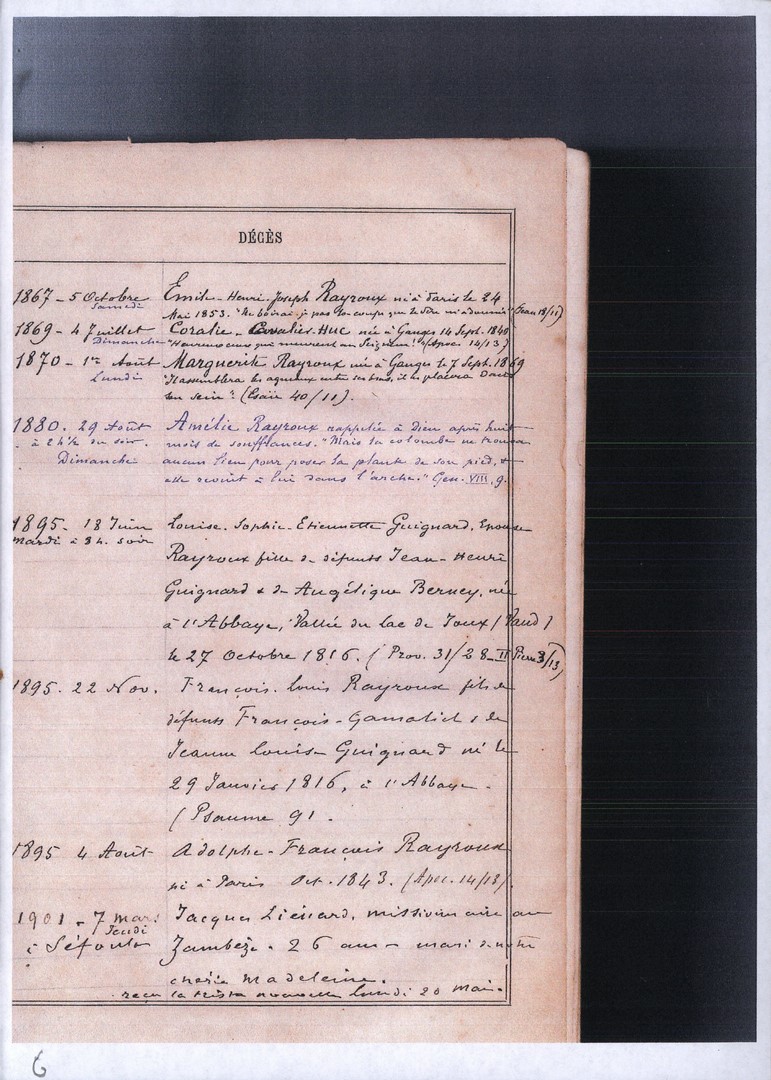 DÉCÈS
1867 - 5 Octobre Emile-Henri-Joseph Rayroux né à Paris le 24
Samedi
Mai 1853. "Ne boirai-je pas la coupe que le Père m'a donnée" (Jean 18/11)
1869 - 4 Juillet Coralie - Huc née à Ganges 14 Sept. 1840
Dimanche "Heureux ceux qui meurent au Seigneur!" (Apoc. 14/13)
1870 - 1er Août Marguerite Rayroux née à Ganges le 7 Sept. 1869
Lundi "Il assemblera les agneaux entre ses bras, il les placera dans
son sein". (Esaïe 40/11).
1880. 29 Août Amélie Rayroux rappelée à Dieu après huit
à 2 h ½ du soir. mois de souffrances. "Mais la colombe ne trouva
Dimanche aucun lieu pour poser la plante de son pied, &
elle revint à lui dans l'arche." Gen. VIII, 9.
1895 - 18 Juin Louise-Sophie-Etiennette Guignard, Epouse
Mardi à 8 h. soir
Rayroux fille de défunts Jean-Henri
Guignard & de Angélique Berney, née
à l'Abbaye, Vallée du Lac de Joux (Vaud)
le 27 Octobre 1816. (Prov. 31/28 - II Pierre 3/13)
1895. 22 Nov. François-Louis Rayroux fils de
défunts François-Gamaliel & de
Jeanne Louise Guignard né le
29 Janvier 1816, à l'Abbaye.
(Psaume 91.
1895 4 Août Adolphe-François Rayroux
né à Paris Oct. 1843. (Apoc. 14/13).
1901 - 7 mars Jacques Liénard, missionnaire au
Jeudi
à Séfoula Zambèze. 26 ans - mari de notre
chérie Madeleine.
reçu la triste nouvelle lundi 20 Mai.
6